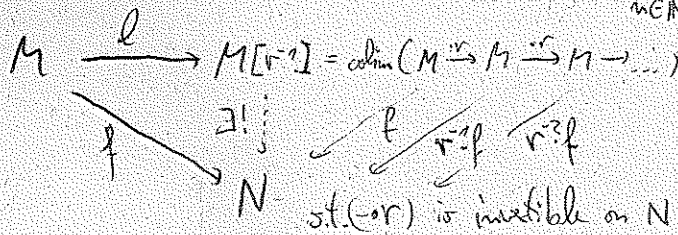 n∈ℕ
M —ℓ→ M[r⁻¹] = colim(M —·r→ M —·r→ M → ...)
f ∃! f r⁻¹f r⁻²f
N s.t. (-∘r) is invertible on N